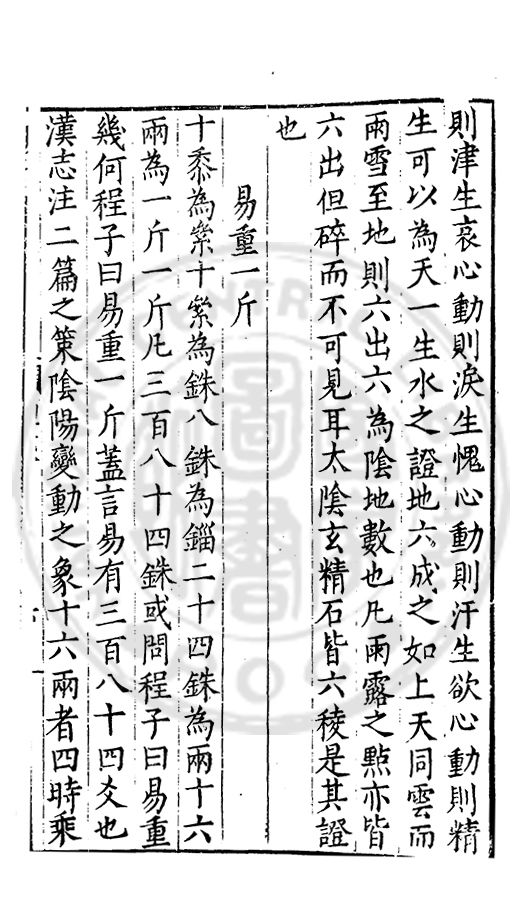 則津生哀心動則淚生愧心動則汗生欲心動則精
生可以為天一生水之證地六成之如上天同雲而
雨雪至地則六出六為陰地數也凡雨露之點亦皆
六出但碎而不可見耳太陰玄精石皆六稜是其證
也
易重一斤
十黍為絫十絫為銖八銖為錙二十四銖為兩十六
兩為一斤一斤凡三百八十四銖或問程子曰易重
幾何程子曰易重一斤蓋言易有三百八十四爻也
漢志注二篇之策陰陽變動之象十六兩者四時乘